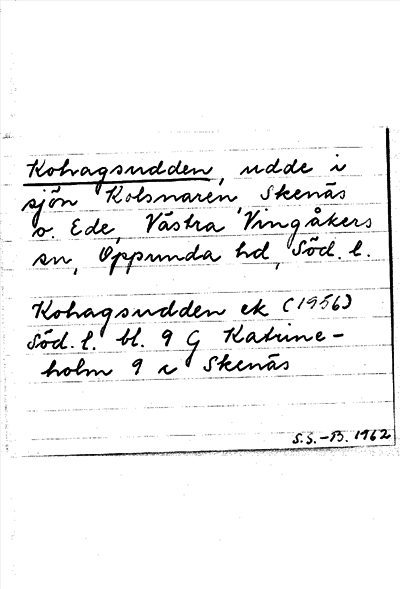 Kohagsudden, udde i
sjön Kolsnaren, Skenäs
o. Ede, Västra Vingåkers
sn, Oppunda hd, Söd. l.
Kohagsudden ek (1956)
Söd. l. bl. 9 G Katrine-
holm 9 i Skenäs
S.S.-B. 1962